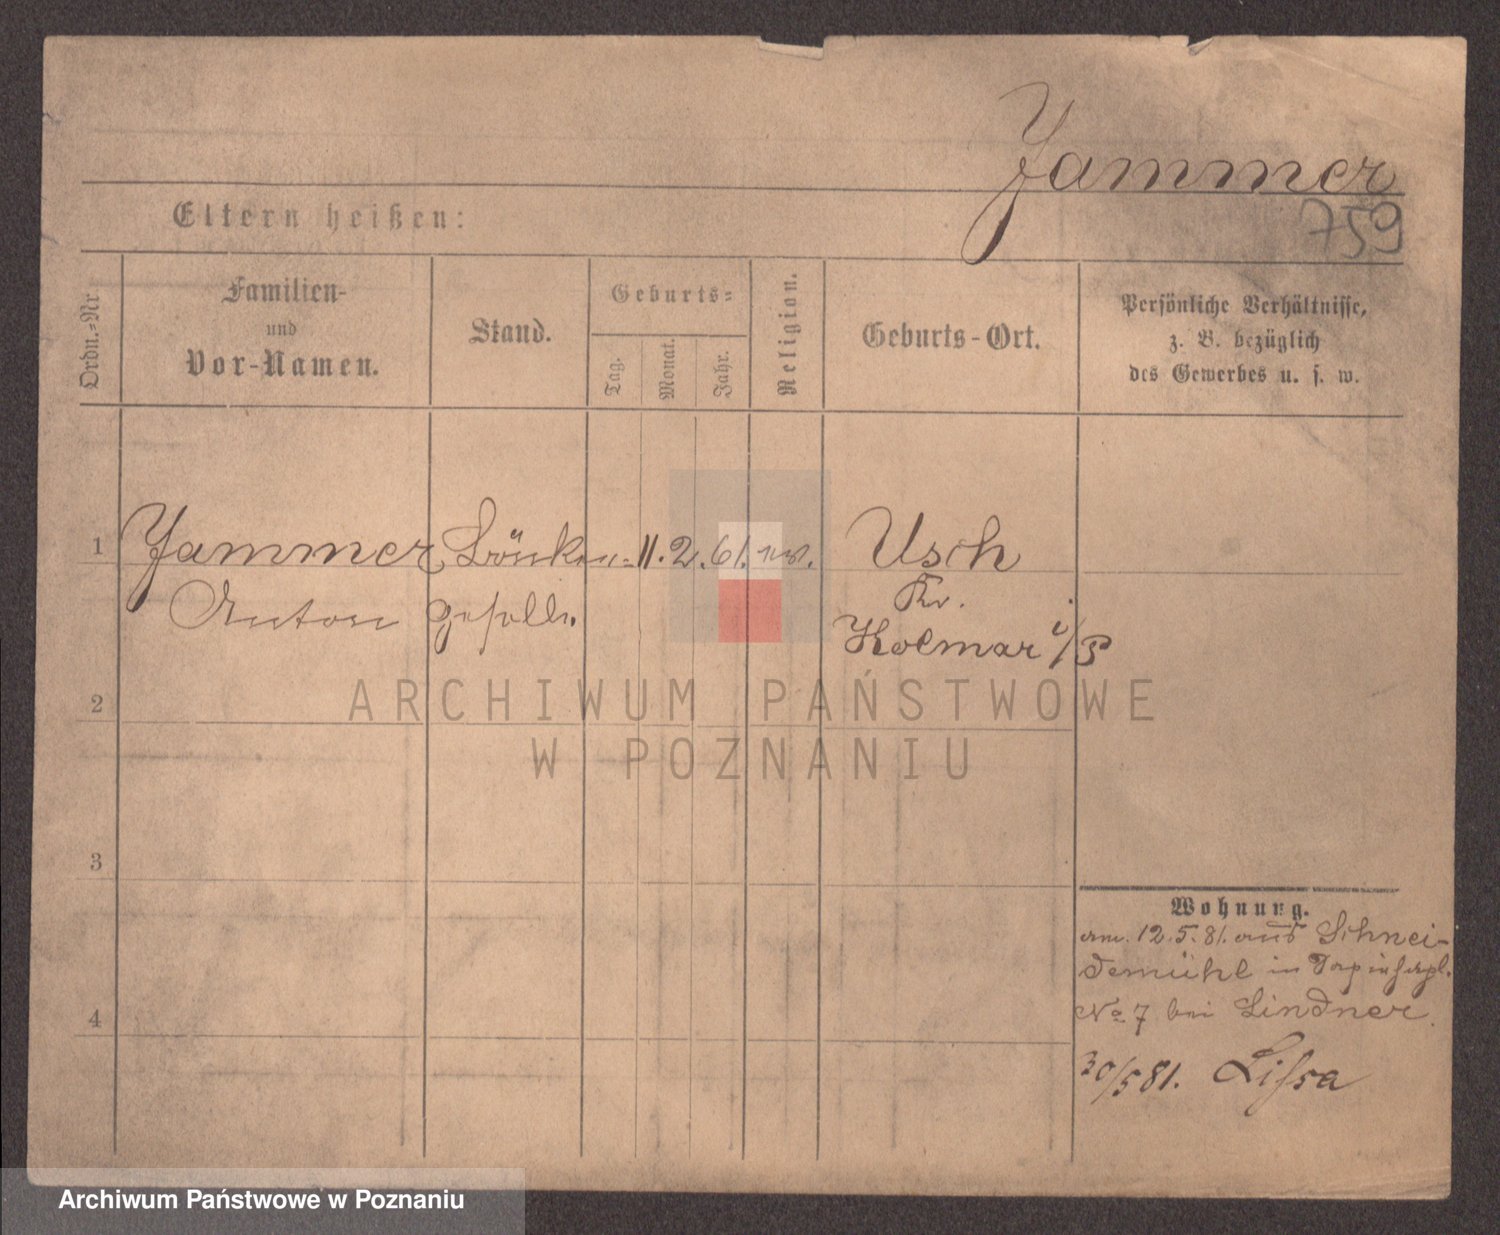 Jammer
759
Eltern heißen:
Ordn.=Nr
Familien-
und
Vor-Namen.
Stand.
Geburts=
Tag.
Monat.
Jahr.
Religion.
Geburts-Ort.
Persönliche Verhältnisse,
z. B. bezüglich
des Gewerbes u. s. w.
1
Jammer
Anton
geselle.
11. 2. 61.
Usch
Kr.
Kolmar i/P
2
3
4
Wohnung.
am. 12.5.81. aus Schnei-
demühl in
No 7 bei Lindner.
30/5 81. Lissa
ARCHIWUM PAŃSTWOWE
W POZNANIU
Archiwum Państwowe w Poznaniu